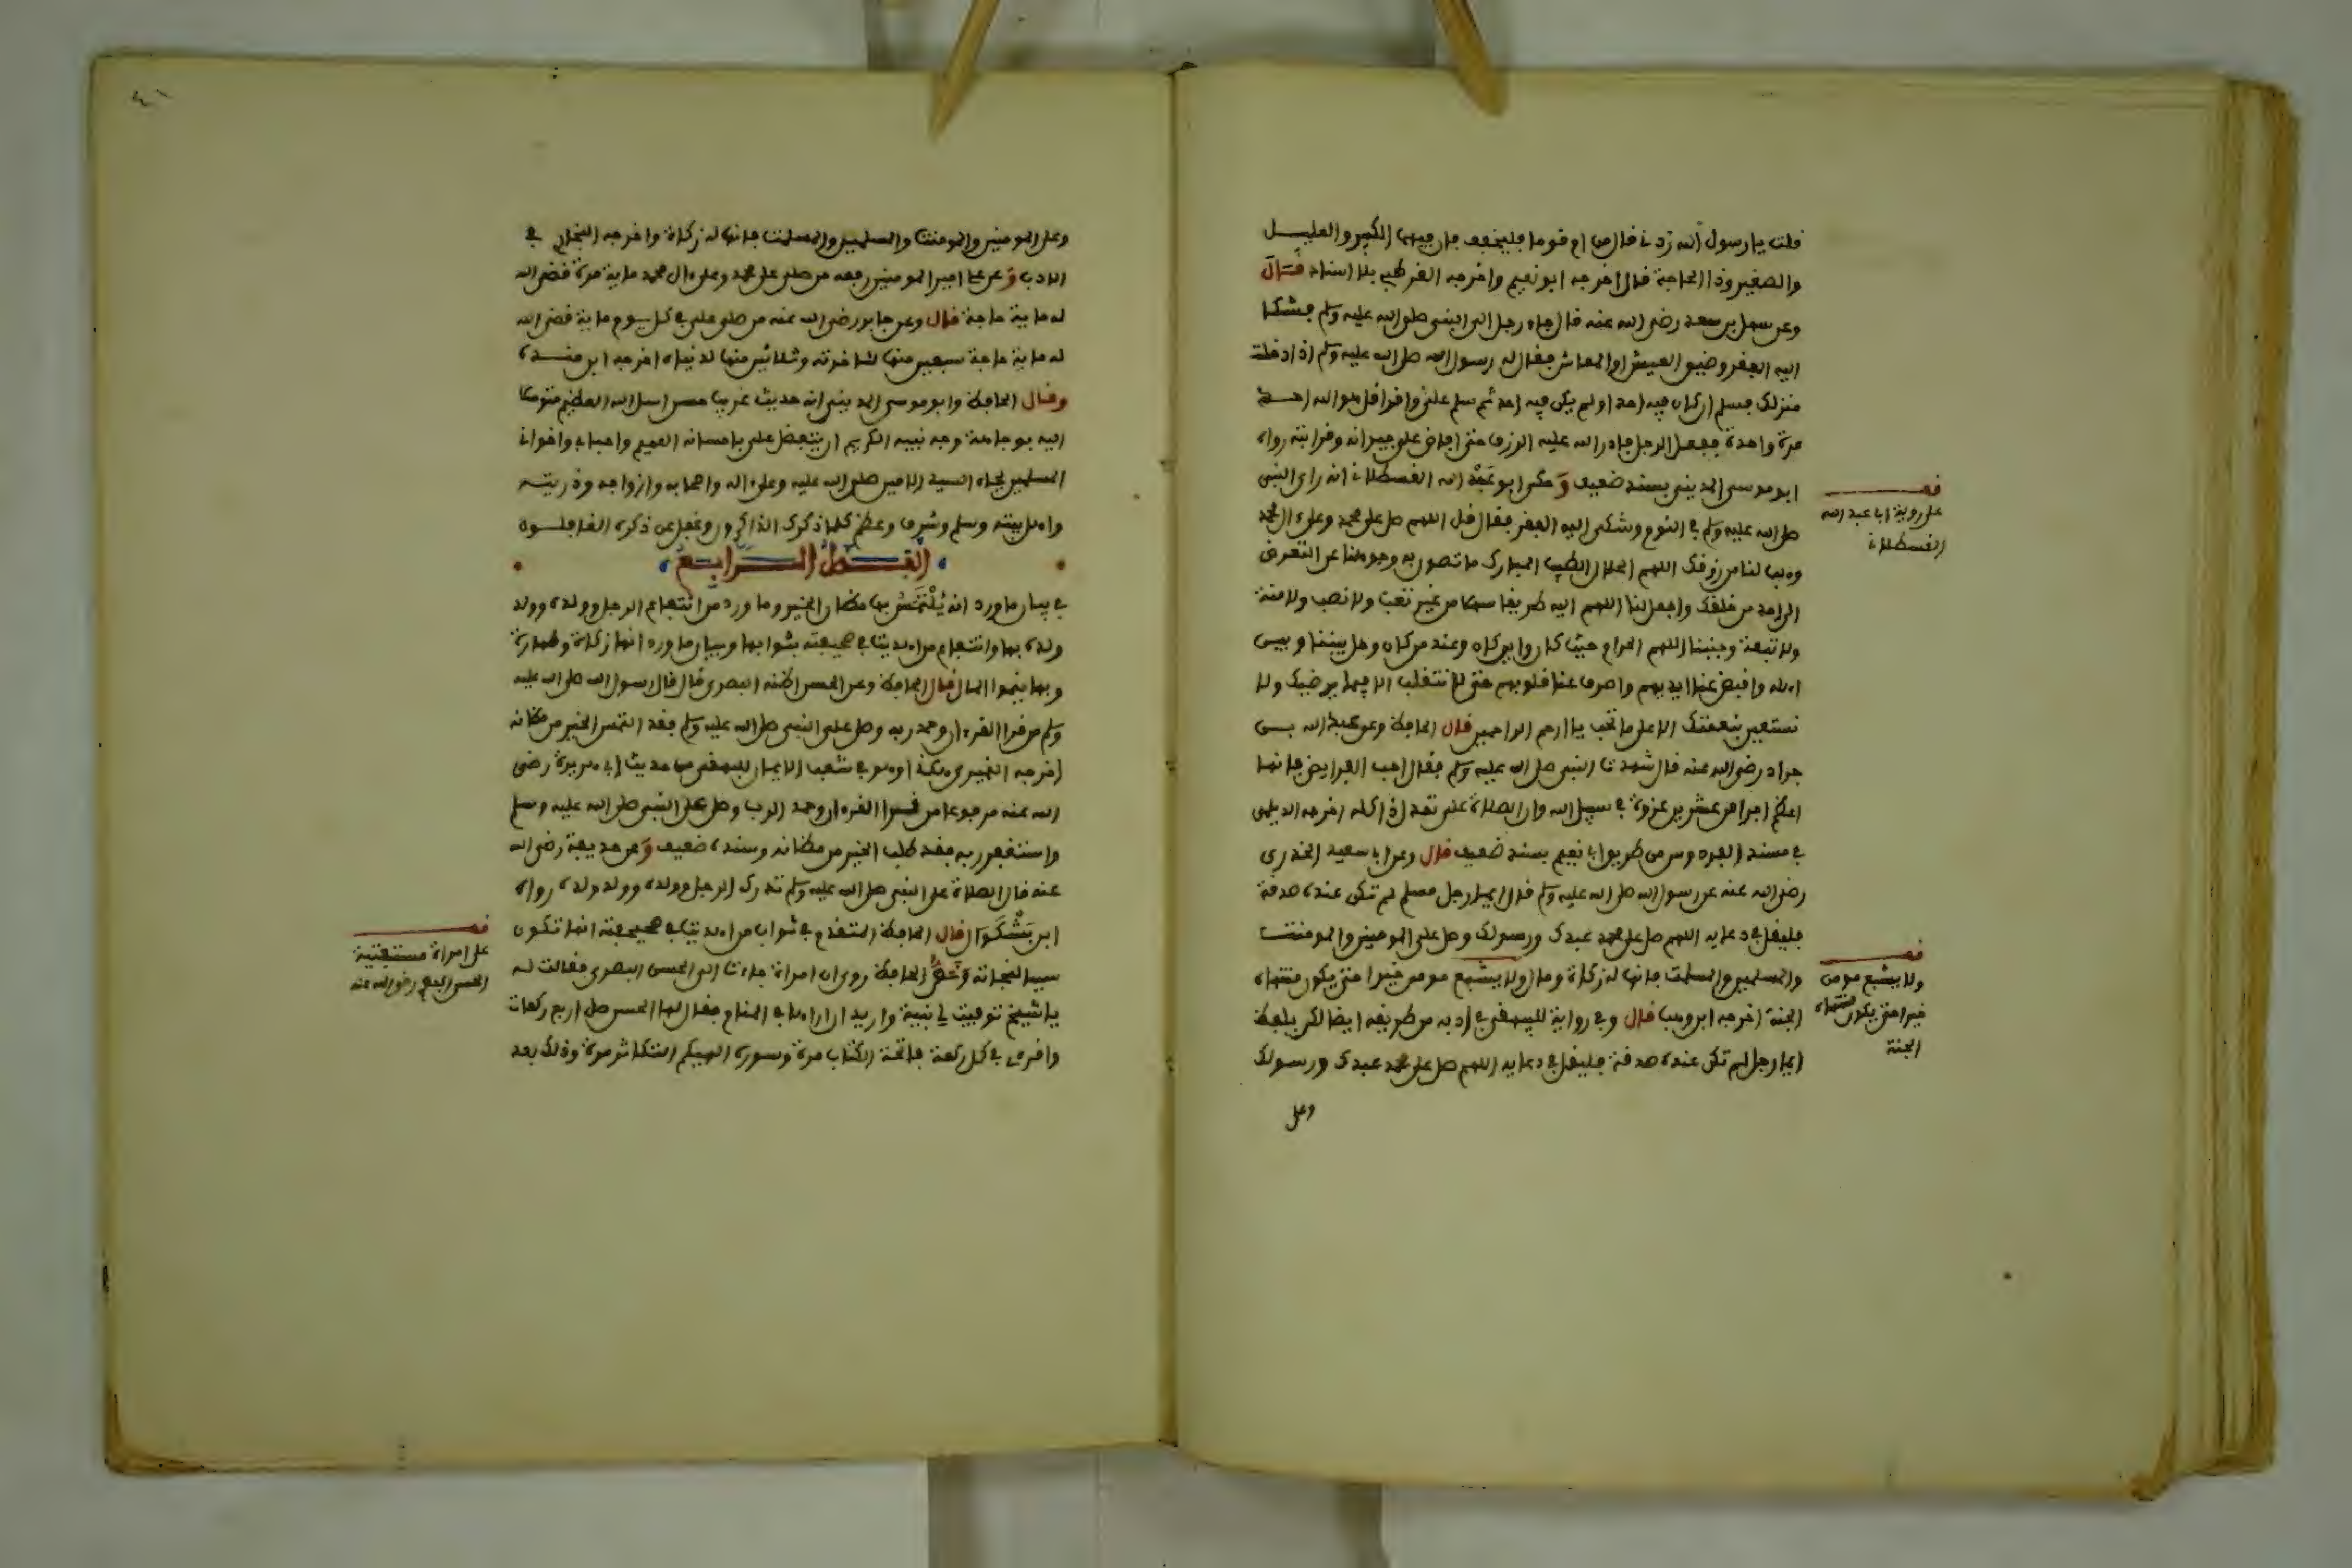 قلت يا رسول الله زدني قال من ام قوما فليخفف فان فيهم الكبير والعليل
والصغير وذا الحاجة قال اخرجه ابو نعيم واخرجه القرطبي بلا اسناد قال
وعن سهل بن سعد رضي الله عنه قال جاء رجل الى النبي صلى الله عليه وسلم فشكا
اليه الفقر وضيق العيش او المعاش فقال له رسول الله صلى الله عليه وسلم اذا دخلت
منزلك فسلم ان كان فيه احد او لم يكن فيه احد ثم سلم علي واقرا قل هو الله احد
مرة واحدة ففعل الرجل فادر الله عليه الرزق حتى افاض على جيرانه وقراباته رواه
ابو موسى المديني بسند ضعيف وحكى ابو عبد الله القسطلاني انه راى النبي
صلى الله عليه وسلم في النوم وشكى اليه الفقر فقال قل اللهم صل على محمد وعلى ءال محمد
وهب لنا من رزقك اللهم الحلال الطيب المبارك ما تصون به وجوهنا عن التعرض
الى احد من خلقك واجعل لنا اللهم اليه طريقا سهلا من غير تعب ولا نصب ولا منة
ولا تبعة وجنبنا اللهم الحرام حيث كان واين كان وعند من كان وحل بيننا وبين
اهله واقبض عنا ايديهم واصرف عنا قلوبهم حتى لا نتقلب الا فيما يرضيك ولا
نستعين بنعمتك الا على ما تحب يا ارحم الراحمين قال الحافظ وعن عبد الله بن
جراد رضي الله عنه قال شهدت النبي صلى الله عليه وسلم فقال احب الفرايض فانها
اعظم اجرا من عشرين غزوة في سبيل الله وان الصلاة علي تعدل ذا كله اخرجه الديلمي
في مسند الفردوس من طريق ابي نعيم بسند ضعيف قال وعن ابي سعيد الخدري
رضي الله عنه عن رسول الله صلى الله عليه وسلم قال ايما رجل مسلم لم تكن عنده صدقة
فليقل في دعايه اللهم صل على محمد عبدك ورسولك وصل على المومنين والمومنت
والمسلمين والمسلمت فانها له زكاة وقال لا يشبع مومن خيرا حتى يكون منتهاه
الجنة اخرجه ابن وهب قال وفي رواية للبيهقي في ادبه من طريقه ايضا لكن بلفظ
ايما رجل لم تكن عنده صدقة فليقل في دعايه اللهم صل على محمد عبدك ورسولك
وعلى
قف
على روية ابي عبد الله
القسطلاني
قف
ولا يشبع مومن
خيرا حتى يكون منتهاه
الجنة
٤١
وعلى المومنين والمومنت والمسلمين والمسلمت فانها له زكاة واخرجه البخاري في
الادب وعن علي امير المومنين رفعه من صلى على محمد وعلى ءال محمد ماية مرة قضى الله
له ماية حاجة قال وعن جابر رضي الله عنه من صلى علي في كل يوم ماية قضى الله
له ماية حاجة سبعين منها لئاخرته وثلاثين منها لدنياه اخرجه ابن منده
وقال الحافظ وابو موسى المديني انه حديث غريب حسن اسل الله العظيم متوسلا
اليه بوجاهة وجه نبيه الكريم ان يتفضل علي باحسانه العميم واحبابي واخواني
المسلمين بجاه السيد الامين صلى الله عليه وعلى ءاله واصحابه وازواجه وذريته
واهل بيته وسلم وشرف وعظم كلما ذكرك الذاكرون وغفل عن ذكره الغافلون
الفصل الرابع
في بيان ما ورد انه يلتمس بها مظان الخير وما ورد من انتفاع الرجل وولده وولد
ولده بها وانتفاع من اهديت في صحيفته بثوابها وبيان ما ورد انها زكاة وطهارة
وبها ينموا المال قال الحافظ وعن الحسن اظنه البصري قال قال رسول الله صلى الله عليه
وسلم من قرا القرءان وحمد ربه وصلى على النبي صلى الله عليه وسلم فقد التمس الخير من مظانه
اخرجه النميري هكذا وهو في شعب الايمان للبيهقي من حديث ابي هريرة رضي
الله عنه مرفوعا من قرا القرءان وحمد الرب وصلى على النبي صلى الله عليه وسلم
واستغفر ربه فقد طلب الخير من مظانه وسنده ضعيف وعن حذيفة رضي الله
عنه قال الصلاة على النبي صلى الله عليه وسلم تدرك الرجل وولده وولد ولده رواه
ابن بشكوال قال الحافظ المتقدم في ثواب من اهديت في صحيفته انها تكون
سببا لنجاته الحافظ روى ان امراة جاءت الى الحسن البصري فقالت له
يا شيخ توفيت لي بنية واريد ان اراها في المنام فقال لها الحسن صلي اربع ركعات
واقرءي في كل ركعة فاتحة الكتاب مرة وسورة الهيكم التكاثر مرة وذلك بعد
قف
على امراة مستفتية
الحسن البصري رضي الله عنه